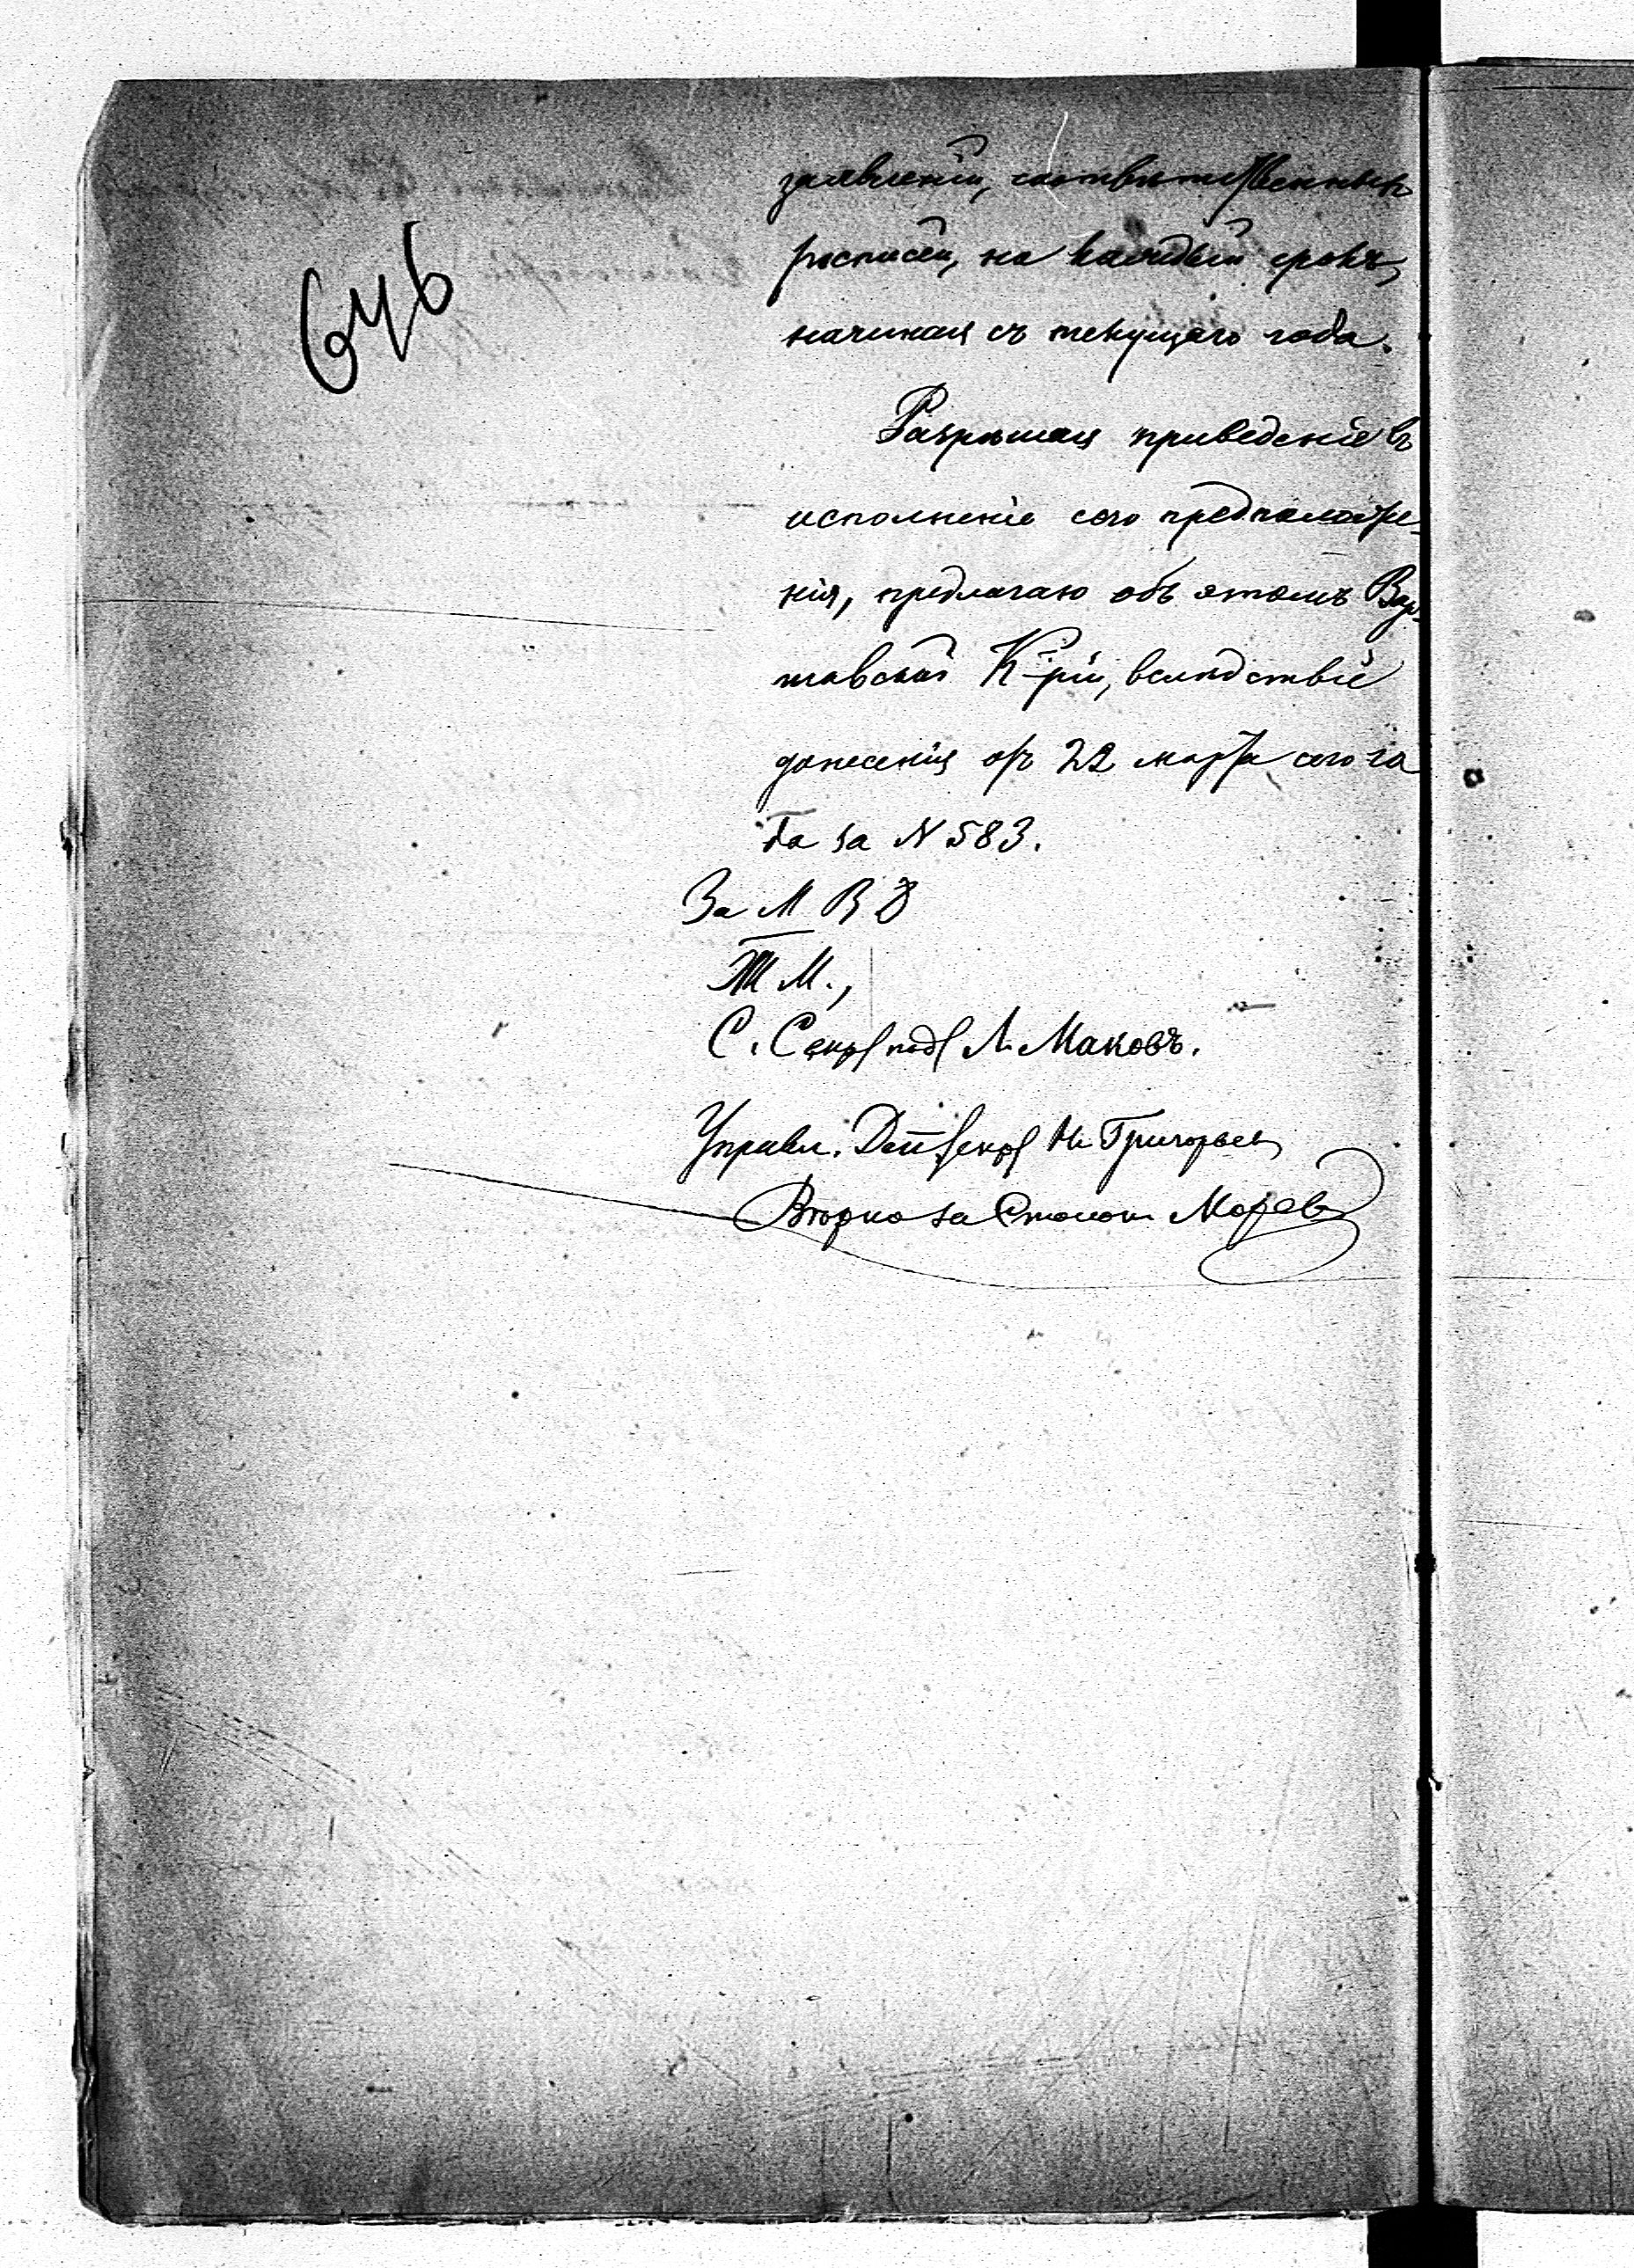 646
заявленій, соотвѣтственныхъ
росписей, на каждый срокъ,
начиная съ текущаго года.
Разрѣшая приведеніе въ
исполненіе сего предположе-
нія, предлагаю объ этомъ Вар-
шавской К-ріи, вслѣдствіе
донесенія отъ 22 марта сего го
да за N 583.
За М В Д
Т М.,
С. Секр. под. Л. Маковъ.
Управл. Деп. Секр. Н. Григорьев
Вѣрно за Столон. Морев